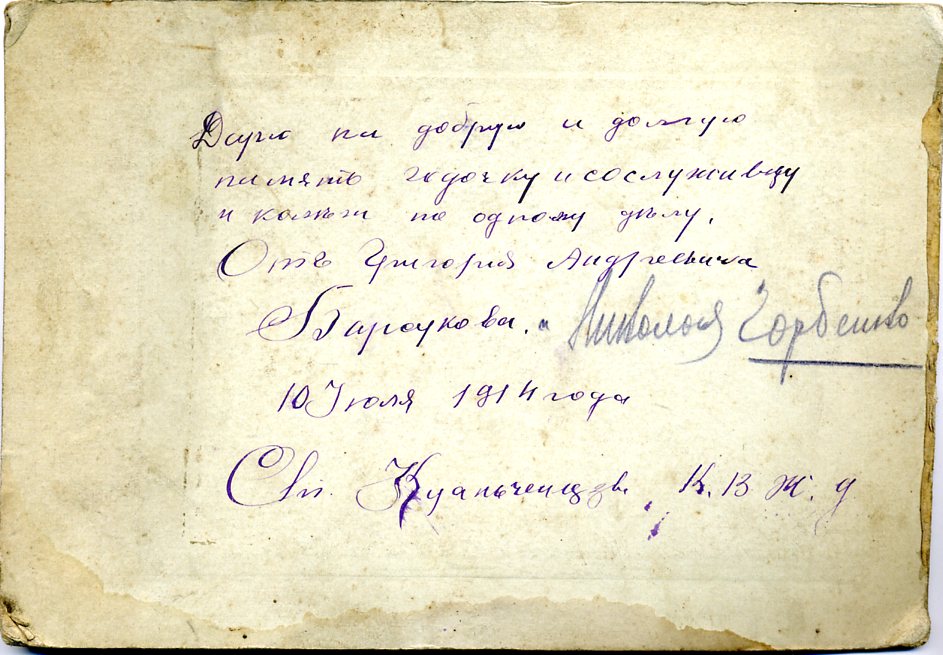 Дарю на добрую и долгую
память годочку и сослуживцу
и колеги по одному дѣлу.
Отъ Григорія Андреевича
и Николая Горбенко
10 Июля 1914 года
Ст. Куанченцзы К.В.Ж.Д